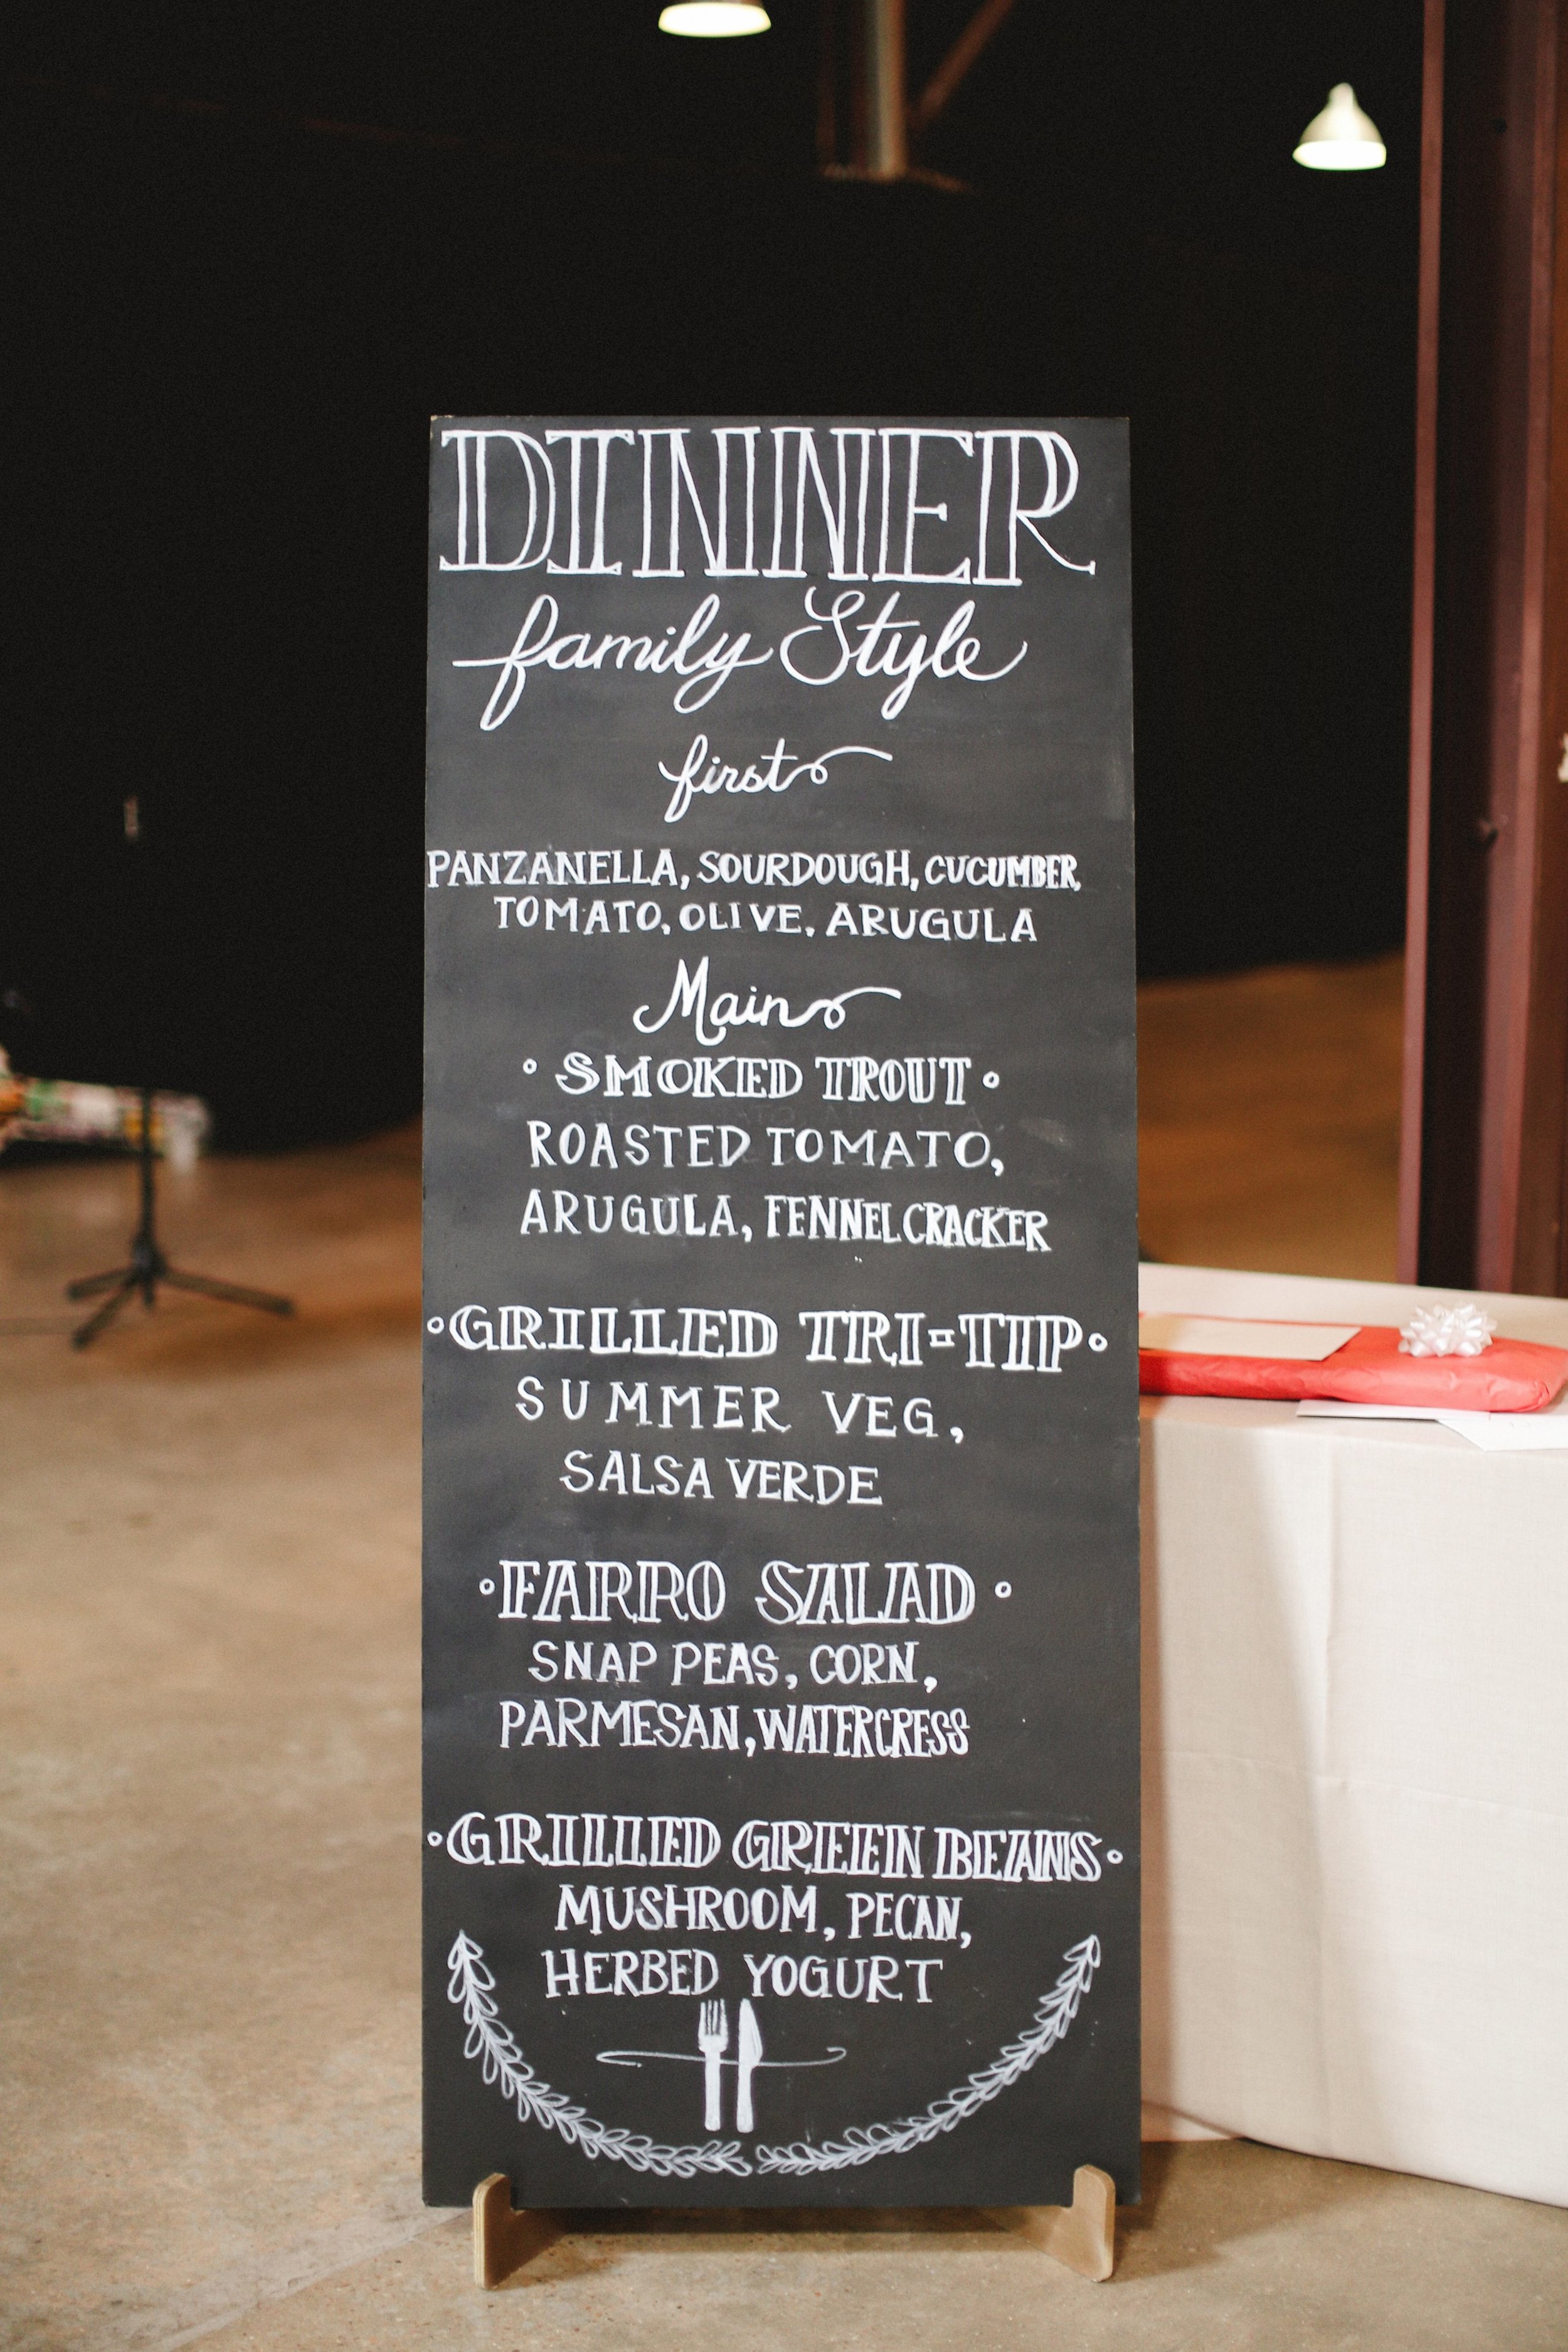 DINNER
family Style
first
PANZANELLA, SOURDOUGH, CUCUMBER,
TOMATO, OLIVE, ARUGULA
Main
• SMOKED TROUT •
ROASTED TOMATO,
ARUGULA, FENNEL CRACKER
• GRILLED TRI-TIP •
SUMMER VEG,
SALSA VERDE
• FARRO SALAD •
SNAP PEAS, CORN,
PARMESAN, WATERCRESS
• GRILLED GREEN BEANS •
MUSHROOM, PECAN,
HERBED YOGURT